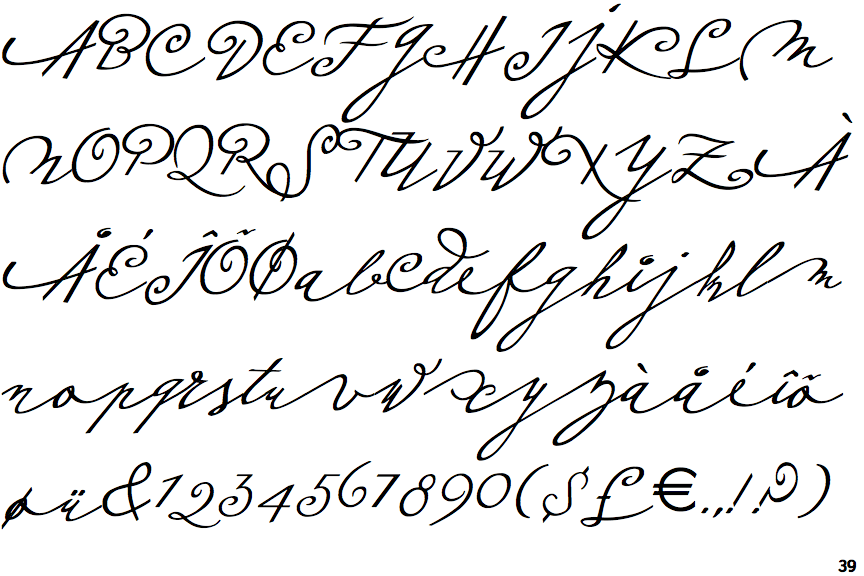 ABCDEFGHIJKLM
NOPQRSTUVWXYZÀ
ÅÉÎÕØabcdefghijklm
nopqrstuvwxyzàåéîõ
øü&1234567890($£€.,!?)
39